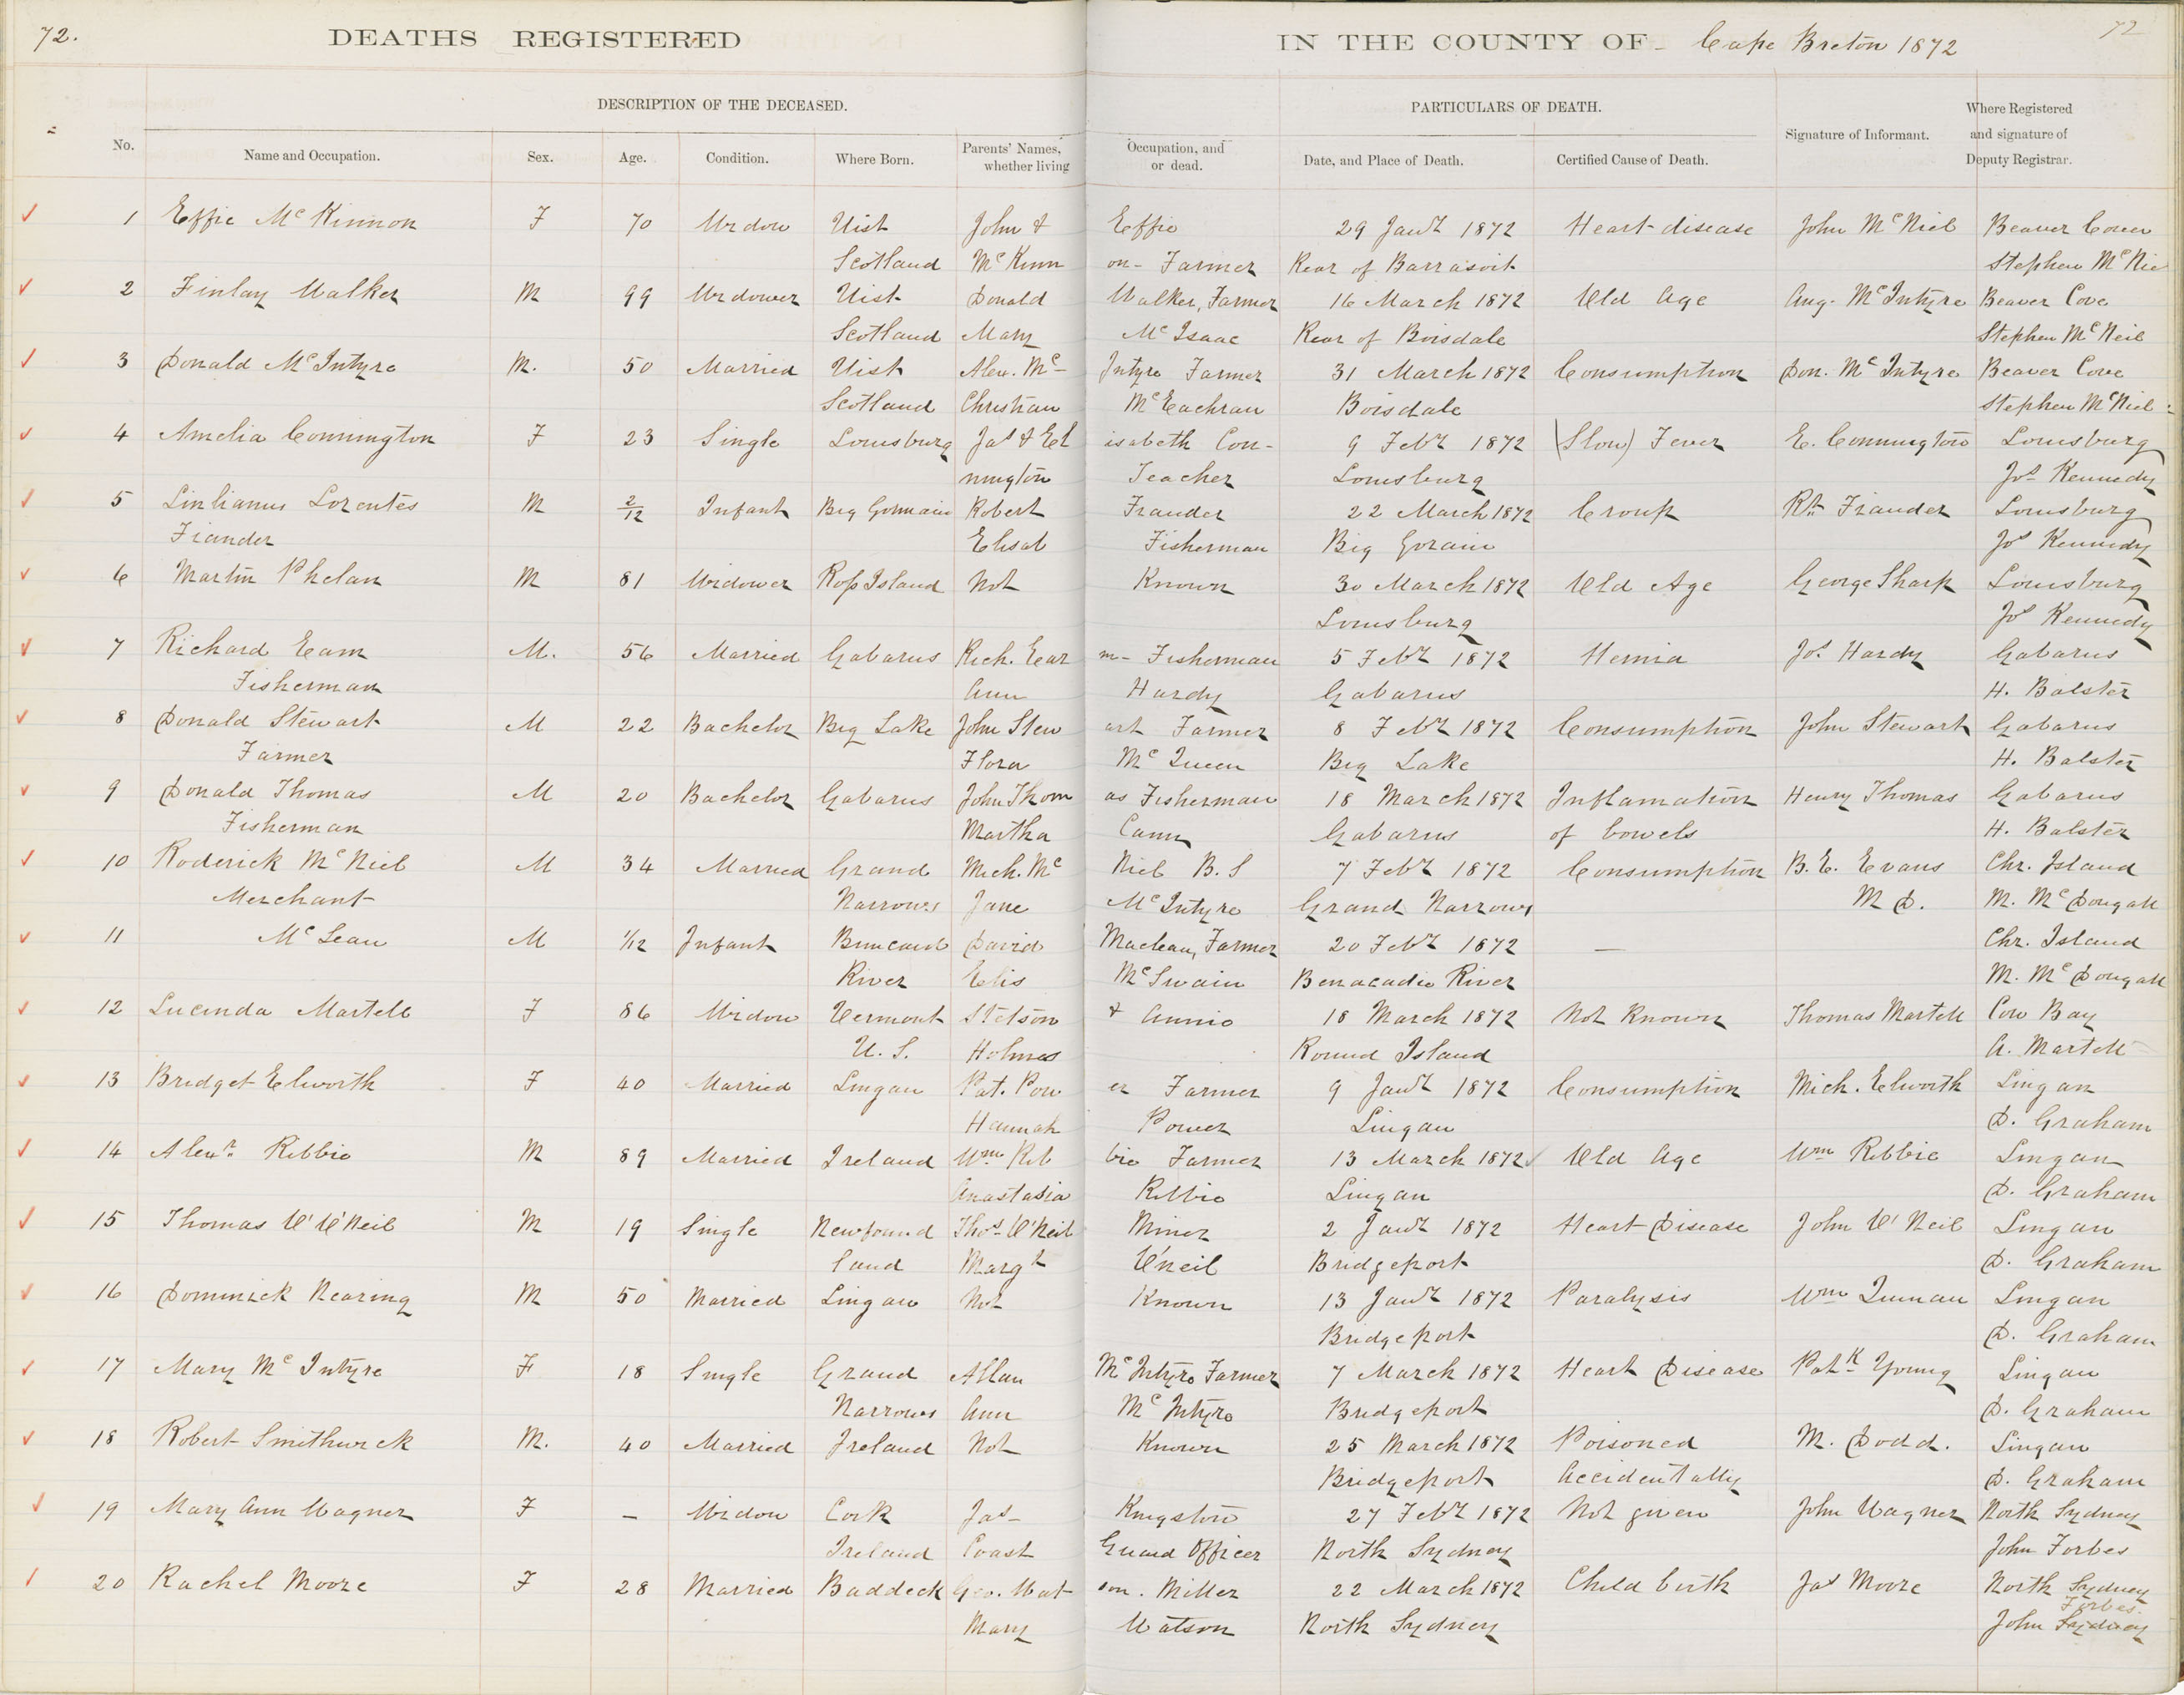 72.
DEATHS REGISTERED IN THE COUNTY OF Cape Breton 1872
72
DESCRIPTION OF THE DECEASED. PARTICULARS OF DEATH.
No. Name and Occupation. Sex. Age. Condition. Where Born. Parents' Names, whether living Occupation, and or dead. Date, and Place of Death. Certified Cause of Death. Signature of Informant. Where Registered and signature of Deputy Registrar.
1 Effie McKinnon F 70 Widow Uist John & Effie 29 Jany 1872 Heart disease John McNeil Beaver Cove
Scotland McKinn on - Farmer Rear of Barrasoit Stephen McNie
2 Finlay Walker M 99 Widower Uist Donald Walker, Farmer 16 March 1872 Old Age Ang. McIntyre Beaver Cove
Scotland Mary McIsaac Rear of Boisdale Stephen McNeil
3 Donald McIntyre M. 50 Married Uist Alex. Mc- Intyre Farmer 31 March 1872 Consumption Don. McIntyre Beaver Cove
Scotland Christian McEachran Boisdale Stephen McNiel
4 Amelia Connington F 23 Single Louisburg Jas & El isabeth Con- 9 Feby 1872 (Slow) Fever E. Connington Louisburg
nington Teacher Louisburg Jos Kennedy
5 Lorentes M 2/12 Infant Big Robert Fiander 22 March 1872 Croup Rt Fiander Louisburg
Fiander Elisab Fisherman Big Jos Kennedy
6 Martin Phelan M 81 Widower Island Not Known 30 March 1872 Old Age George Sharp Louisburg
Louisburg Jos Kennedy
7 Richard Eam M. 56 Married Gabarus Rich. Ear m - Fisherman 5 Feby 1872 Hernia Jos Hardy Gabarus
Fisherman Ann Hardy Gabarus H. Balster
8 Donald Stewart M 22 Bachelor Big Lake John Stew art Farmer 8 Feby 1872 Consumption John Stewart Gabarus
Farmer Flora McQueen Big Lake H. Balster
9 Donald Thomas M 20 Bachelor Gabarus John Thom as Fisherman 18 March 1872 Inflamation Henry Thomas Gabarus
Fisherman Martha Cann Gabarus of bowels H. Balster
10 Roderick McNeil M 34 Married Grand Mich. Mc Niel B.S 7 Feby 1872 Consumption B. E. Evans Chr. Island
Merchant Narrows Jane McIntyre Grand Narrows M D. M. McDougall
11 McLean M 1/12 Infant David Maclean, Farmer 20 Feby 1872 — Chr. Island
River Elis McSwain Benacadie River M. McDougall
12 Lucinda Martell F 86 Widow Vermont Stetson & Annie 18 March 1872 Not Known Thomas Martell Cow Bay
U. S. Holmes Round Island A. Martell
13 Bridget Elworth F 40 Married Lingan Pat. Pow er Farmer 9 Jany 1872 Consumption Mich. Elworth Lingan
Hannah Power Lingan D. Graham
14 Alexr. Ribbie M 89 Married Ireland Wm Rib bie Farmer 13 March 1872 Old Age Wm Ribbie Lingan
Anastasia Ribbie Lingan D. Graham
15 Thomas O'O'Neil M 19 Single Newfound Thos O'Neil Miner 2 Jany 1872 Heart Disease John O'Neil Lingan
land Margt O'neil Bridgeport D. Graham
16 Dominick Nearing M 50 Married Lingan Not Known 13 Jany 1872 Paralysis Wm Quinan Lingan
Bridgeport D. Graham
17 Mary McIntyre F 18 Single Grand Allan McIntyre Farmer 7 March 1872 Heart Disease Patk Young Lingan
Narrows Ann McIntyre Bridgeport D. Graham
18 Robert Smithwick M. 40 Married Ireland Not Known 25 March 1872 Poisoned M. Dodd. Lingan
Bridgeport Accidentally D. Graham
19 Mary Ann Wagner F — Widow Cork Jas- Kingston 27 Feby 1872 Not given John Wagner North Sydney
Ireland Coast Guard Officer North Sydney John Forbes
20 Rachel Moore F 28 Married Baddeck Geo. Wat- son. Miller 22 March 1872 Child birth Jas Moore North Sydney
Mary Watson North Sydney John Sydney Forbes.